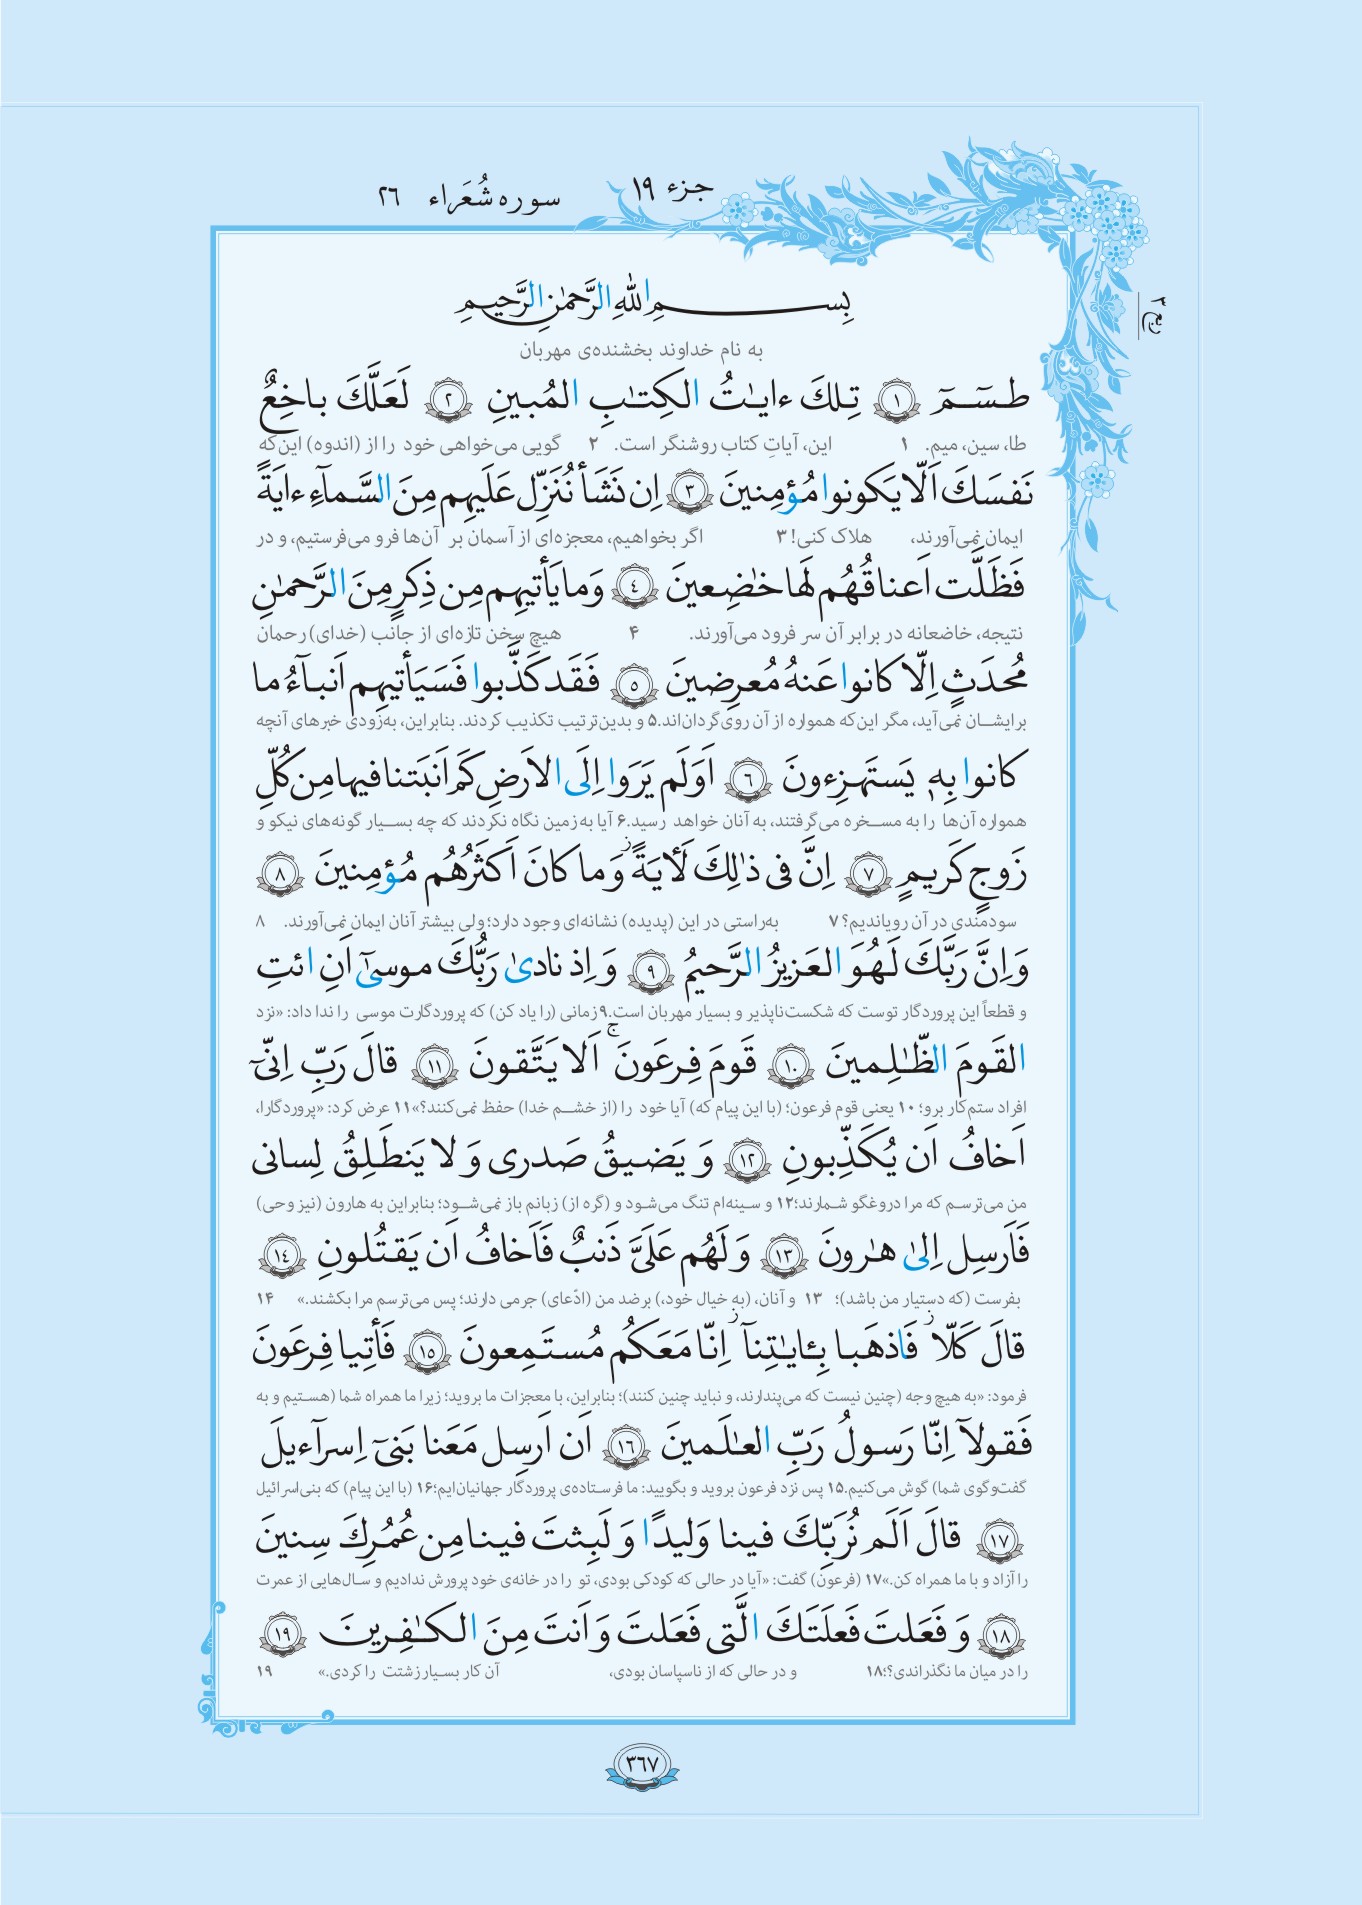 جزء ١٩
سوره شُعَراء ٢٦
ربع ٣
بِسمِ اللّٰهِ الرَّحمٰنِ الرَّحیمِ
به نام خداوند بخشنده‌ی مهربان
طسٓمٓ ١ تِلكَ ءایـٰتُ الكِتـٰبِ المُبینِ ٢ لَعَلَّكَ باخِعٌ
طا، سین، میم. ۱ این، آیاتِ کتاب روشنگر است. ۲ گویی می‌خواهی خود را از (اندوه) این‌که
نَفسَكَ اَلّا یَكونوا مُؤمِنینَ ٣ اِن نَشَأ نُنَزِّل عَلَیهِم مِنَ السَّماۤءِ ءایَةً
ایمان نمی‌آورند، هلاک کنی! ۳ اگر بخواهیم، معجزه‌ای از آسمان بر آن‌ها فرو می‌فرستیم، و در
فَظَلَّت اَعناقُهُم لَها خٰضِعینَ ٤ وَما یَأتیهِم مِن ذِكرٍ مِنَ الرَّحمٰنِ
نتیجه، خاضعانه در برابر آن سر فرود می‌آورند. ۴ هیچ سخن تازه‌ای از جانب (خدای) رحمان
مُحدَثٍ اِلّا كانوا عَنهُ مُعرِضینَ ٥ فَقَد كَذَّبوا فَسَیَأتیهِم اَنباۤءُ ما
برایشان نمی‌آید، مگر این‌که همواره از آن روی‌گردان‌اند.۵ و بدین‌ترتیب تکذیب کردند. بنابراین، به‌زودی خبرهای آنچه
كانوا بِهٖ یَستَهزِءونَ ٦ اَوَلَم یَرَوا اِلَی الاَرضِ كَم اَنبَتنا فیها مِن كُلِّ
همواره آن‌ها را به مسخره می‌گرفتند، به آنان خواهد رسید.۶ آیا به زمین نگاه نکردند که چه بسیار گونه‌های نیکو و
زَوجٍ كَریمٍ ٧ اِنَّ فی ذٰلِكَ لَأیَةً ۖ وَما كانَ اَكثَرُهُم مُؤمِنینَ ٨
سودمندی در آن رویاندیم؟ ۷ به‌راستی در این (پدیده) نشانه‌ای وجود دارد؛ ولی بیشتر آنان ایمان نمی‌آورند. ۸
وَاِنَّ رَبَّكَ لَهُوَ العَزیزُ الرَّحیمُ ٩ وَاِذ نادیٰ رَبُّكَ موسیٰۤ اَنِ ائتِ
و قطعاً این پروردگار توست که شکست‌ناپذیر و بسیار مهربان است.۹ زمانی (را یاد کن) که پروردگارت موسی را ندا داد: «نزد
القَومَ الظّـٰلِمینَ ١٠ قَومَ فِرعَونَ ۚ اَلا یَتَّقونَ ١١ قالَ رَبِّ اِنّیۤ
افراد ستم‌کار برو؛ ۱۰ یعنی قوم فرعون؛ (با این پیام که) آیا خود را (از خشم خدا) حفظ نمی‌کنند؟» ۱۱ عرض کرد: «پروردگارا،
اَخافُ اَن یُكَذِّبونِ ١٢ وَ یَضیقُ صَدری وَ لا یَنطَلِقُ لِسانی
من می‌ترسم که مرا دروغگو شمارند؛۱۲ و سینه‌ام تنگ می‌شود و (گره از) زبانم باز نمی‌شود؛ بنابراین به هارون (نیز وحی)
فَاَرسِل اِلیٰ هٰرونَ ١٣ وَ لَهُم عَلَیَّ ذَنبٌ فَاَخافُ اَن یَقتُلونِ ١٤
بفرست (که دستیار من باشد)؛ ۱۳ و آنان، (به خیال خود،) برضد من (ادّعای) جرمی دارند؛ پس می‌ترسم مرا بکشند.» ۱۴
قالَ كَلّا ۖ فَاذهَبا بِـٔایـٰتِناۤ ۖ اِنّا مَعَكُم مُستَمِعونَ ١٥ فَأتِیا فِرعَونَ
فرمود: «به هیچ وجه (چنین نیست که می‌پندارند، و نباید چنین کنند)؛ بنابراین، با معجزات ما بروید؛ زیرا ما همراه شما (هستیم و به
فَقولاۤ اِنّا رَسولُ رَبِّ العـٰلَمینَ ١٦ اَن اَرسِل مَعَنا بَنیۤ اِسراۤءیلَ
گفت‌وگوی شما) گوش می‌کنیم.۱۵ پس نزد فرعون بروید و بگویید: ما فرستاده‌ی پروردگار جهانیان‌ایم؛۱۶ (با این پیام) که بنی‌اسرائیل
١٧ قالَ اَلَم نُرَبِّكَ فینا وَلیدًا وَ لَبِثتَ فینا مِن عُمُرِكَ سِنینَ
را آزاد و با ما همراه کن.»۱۷ (فرعون) گفت: «آیا در حالی که کودکی بودی، تو را در خانه‌ی خود پرورش ندادیم و سال‌هایی از عمرت
١٨ وَ فَعَلتَ فَعلَتَكَ الَّتی فَعَلتَ وَ اَنتَ مِنَ الكـٰفِرینَ ١٩
را در میان ما نگذراندی؟!؛۱۸ و در حالی که از ناسپاسان بودی، آن کار بسیار زشتت را کردی.» ۱۹
٣٦٧